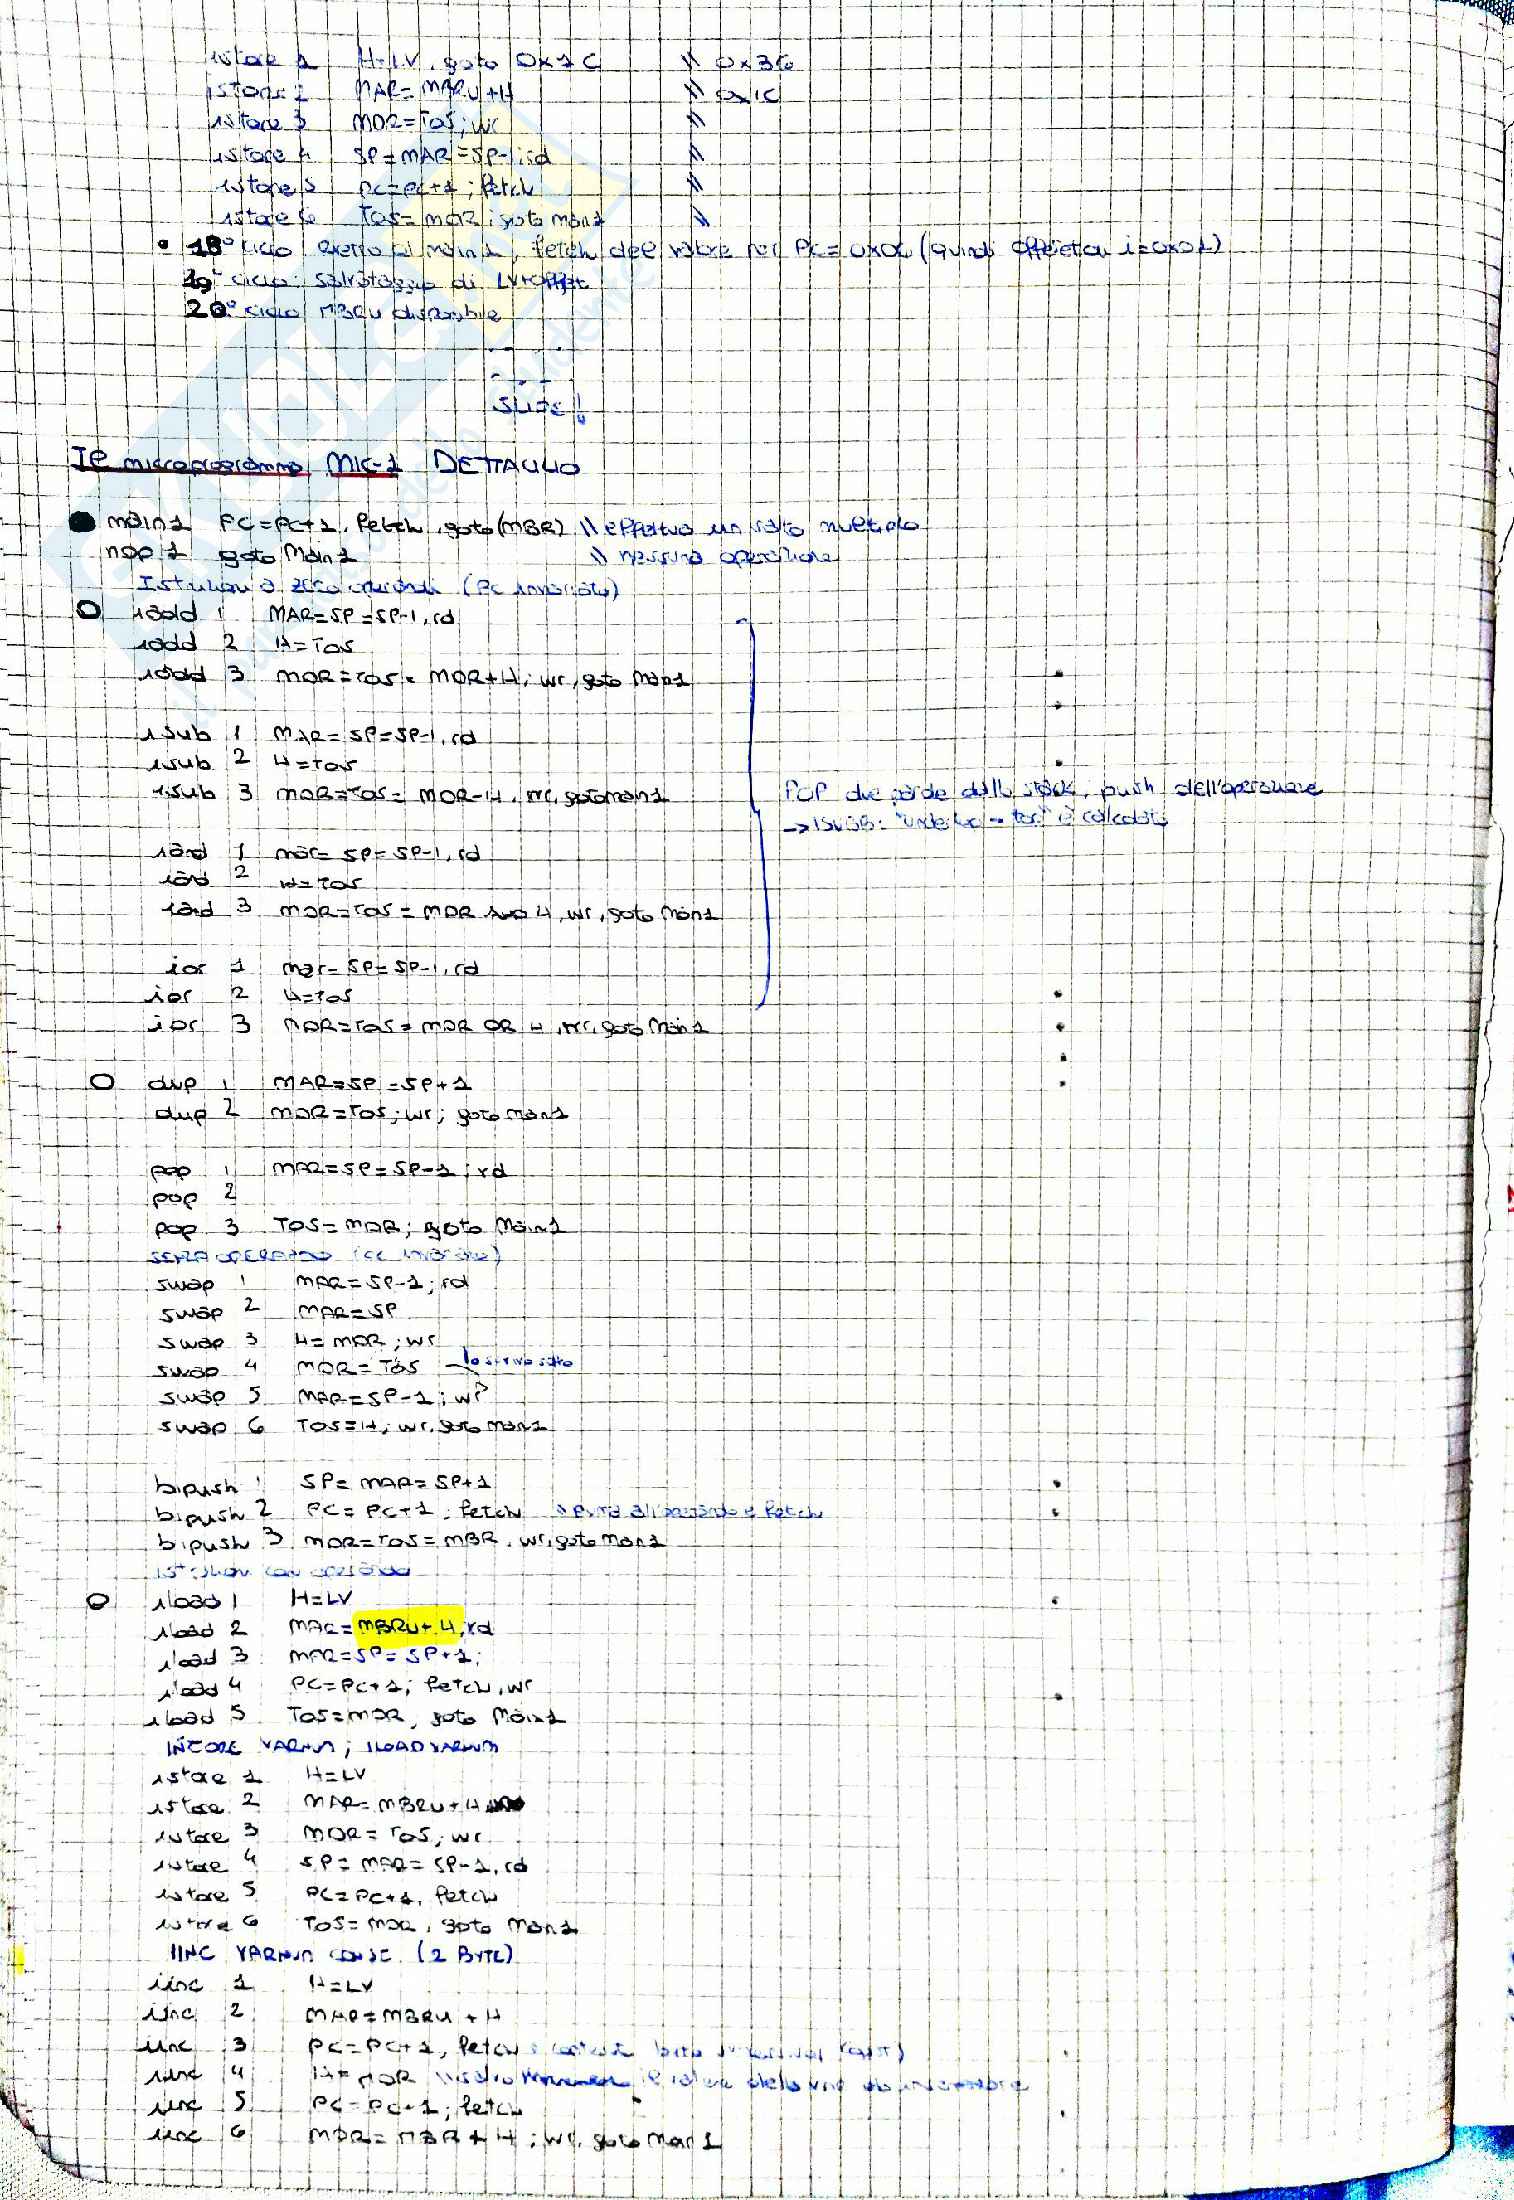 istore 1 H=LV, goto 0x1C \\ 0x36
istore 2 MAR=MBRU+H \\ 0x1C
istore 3 MDR=TOS; wr \\
istore 4 SP=MAR=SP-1; rd \\
istore 5 PC=PC+1; fetch \\
istore 6 TOS=MDR; goto main1 \\
• 18° ciclo main1, fetch del valore per PC=
19° ciclo: salvataggio di LV+offset
20° ciclo MBRU disponibile
SLIDE!
Il microprogramma MIC-1 DETTAGLIO
main1 PC=PC+1, fetch, goto(MBR) \\ effettua un salto multiplo
nop 1 goto Main1 \\ nessuna operazione
Istruzioni a zero operandi (PC invariato)
iadd 1 MAR=SP=SP-1, rd
iadd 2 H=TOS
iadd 3 MDR=TOS= MDR+H; wr, goto Main1
isub 1 MAR=SP=SP-1, rd
isub 2 H=TOS
isub 3 MDR=TOS= MDR-H, wr, goto main1
POP due parole dallo stack, push dell'operazione
→ ISUB:
iand 1 mar= SP=SP-1, rd
iand 2 H=TOS
iand 3 MDR=TOS= MDR H, wr, goto Main1
ior 1 mar= SP=SP-1, rd
ior 2 H=TOS
ior 3 MDR=TOS= MDR OR H, wr, goto Main1
dup 1 MAR=SP=SP+1
dup 2 MDR=TOS; wr; goto main1
pop 1 MAR=SP=SP-1; rd
pop 2
pop 3 TOS=MDR; goto Main1
SENZA OPERANDO
swap 1 MAR=SP-1; rd
swap 2 MAR=SP
swap 3 H=MDR; wr
swap 4 MDR=TOS
swap 5 MAR=SP-1; wr
swap 6 TOS=H; wr, goto main1
bipush 1 SP=MAR=SP+1
bipush 2 PC=PC+1; fetch
bipush 3 MDR=TOS=MBR, wr, goto Main1
istruzioni con operando
iload 1 H=LV
iload 2 MAR=MBRU+H, rd
iload 3 MAR=SP=SP+1;
iload 4 PC=PC+1; fetch, wr
iload 5 TOS=MDR, goto Main1
VARNUM; ILOAD VARNUM
istore 1 H=LV
istore 2 MAR=MBRU+H
istore 3 MDR=TOS; wr
istore 4 SP=MAR=SP-1, rd
istore 5 PC=PC+1, fetch
istore 6 TOS=MDR, goto Main1
IINC VARNUM CONST (2 BYTE)
iinc 1 H=LV
iinc 2 MAR=MBRU+H
iinc 3 PC=PC+1, fetch
iinc 4 H=MDR
iinc 5 PC=PC+1; fetch
iinc 6 MDR=MBR+H; wr, goto main1